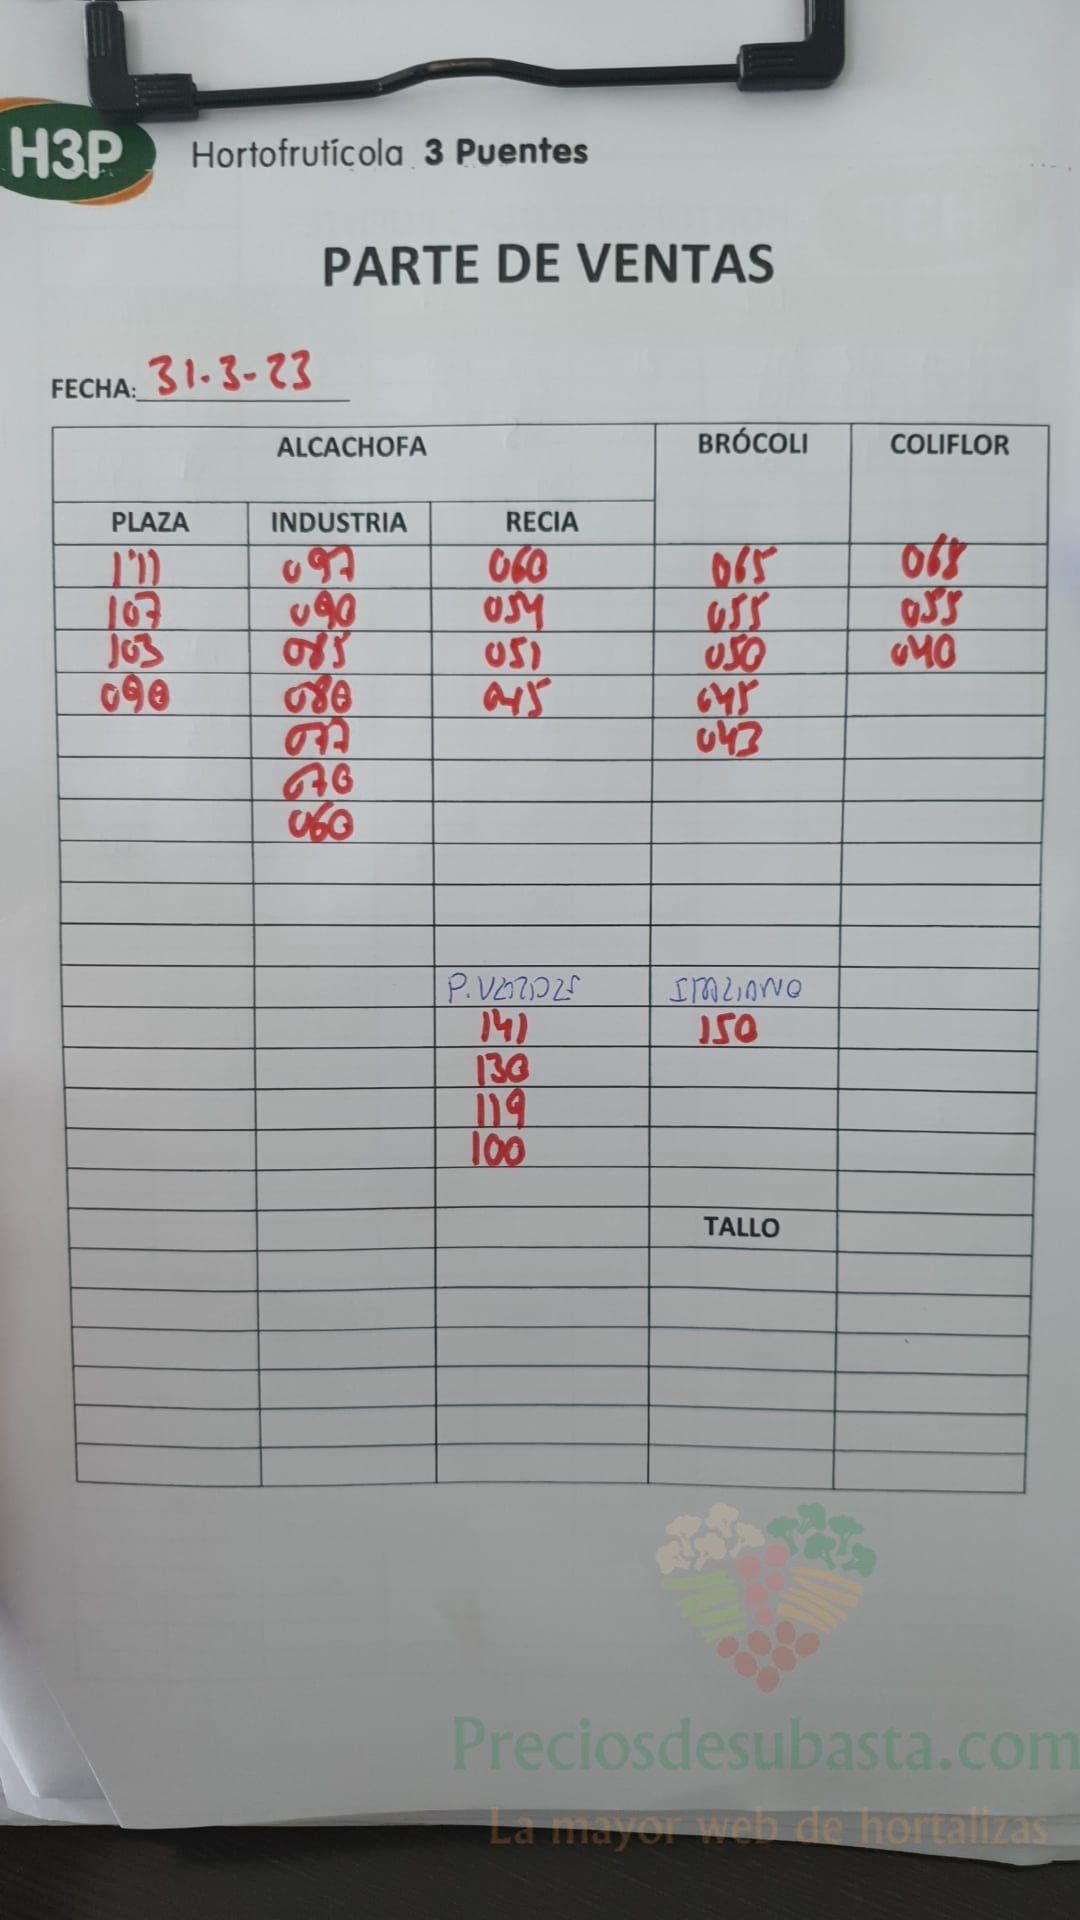 H3P Hortofrutícola 3 Puentes
PARTE DE VENTAS
FECHA: 31-3-23
ALCACHOFA BRÓCOLI COLIFLOR
PLAZA INDUSTRIA RECIA
1'11 097 060 065 068
107 090 054 055 055
103 085 051 050 040
090 080 045 045
077 043
070
060
P.VERDE ITALIANO
141 150
130
119
100
TALLO
Preciosdesubasta.com
La mayor web de hortalizas